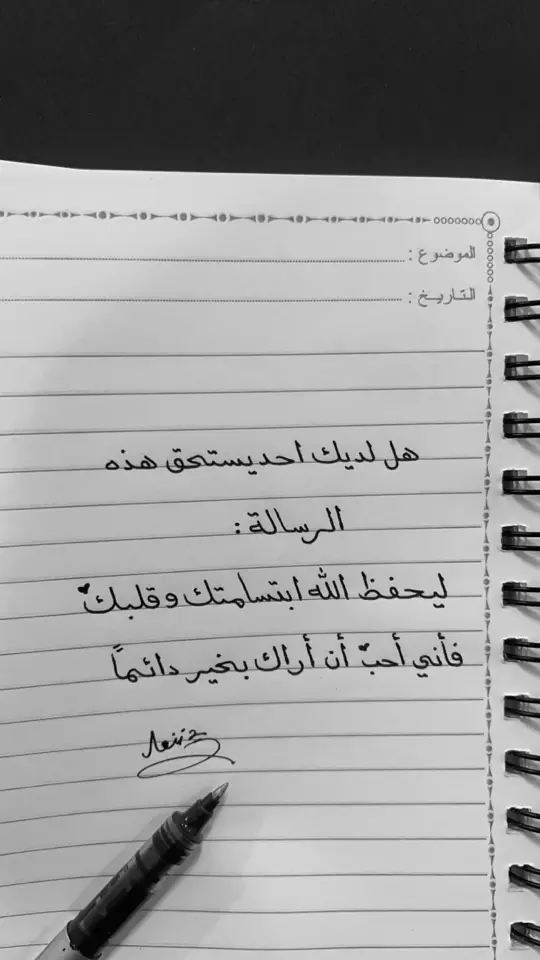 الموضوع :
التاريخ :
هل لديك احد يستحق هذه
الرسالة :
ليحفظ الله ابتسامتك و قلبك
فأني أحب أن أراك بخير دائماً